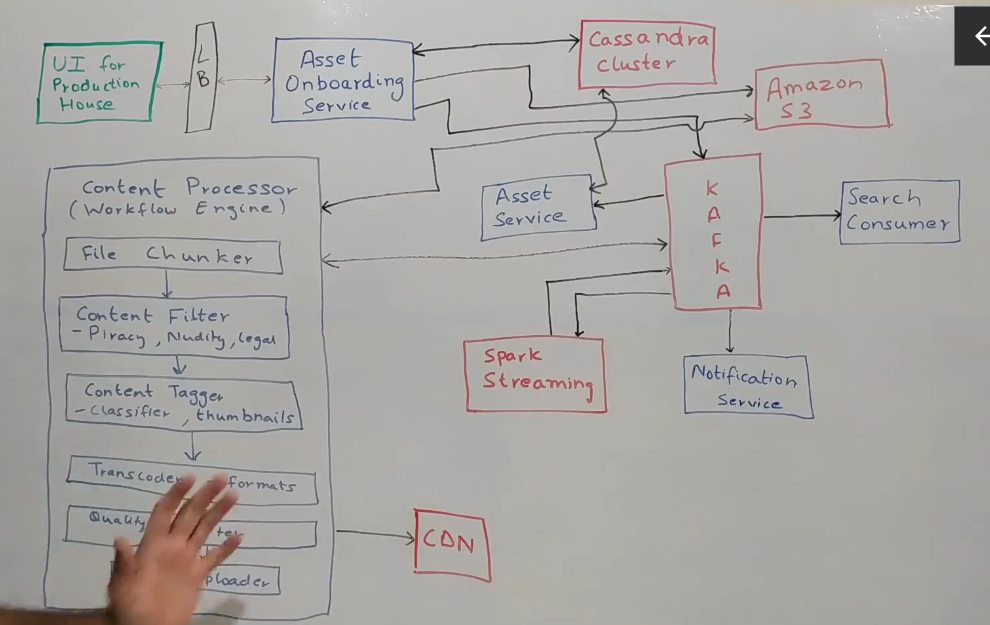 UI for
Production
House
LB
Asset
Onboarding
Service
Cassandra
Cluster
Amazon
S3
Content Processor
(Workflow Engine)
File Chunker
Content Filter
- Piracy, Nudity, legal
Content Tagger
- Classifier, thumbnails
Transcoder formats
Quality
Asset
Service
KAFKA
Search
Consumer
Spark
Streaming
Notification
Service
CDN